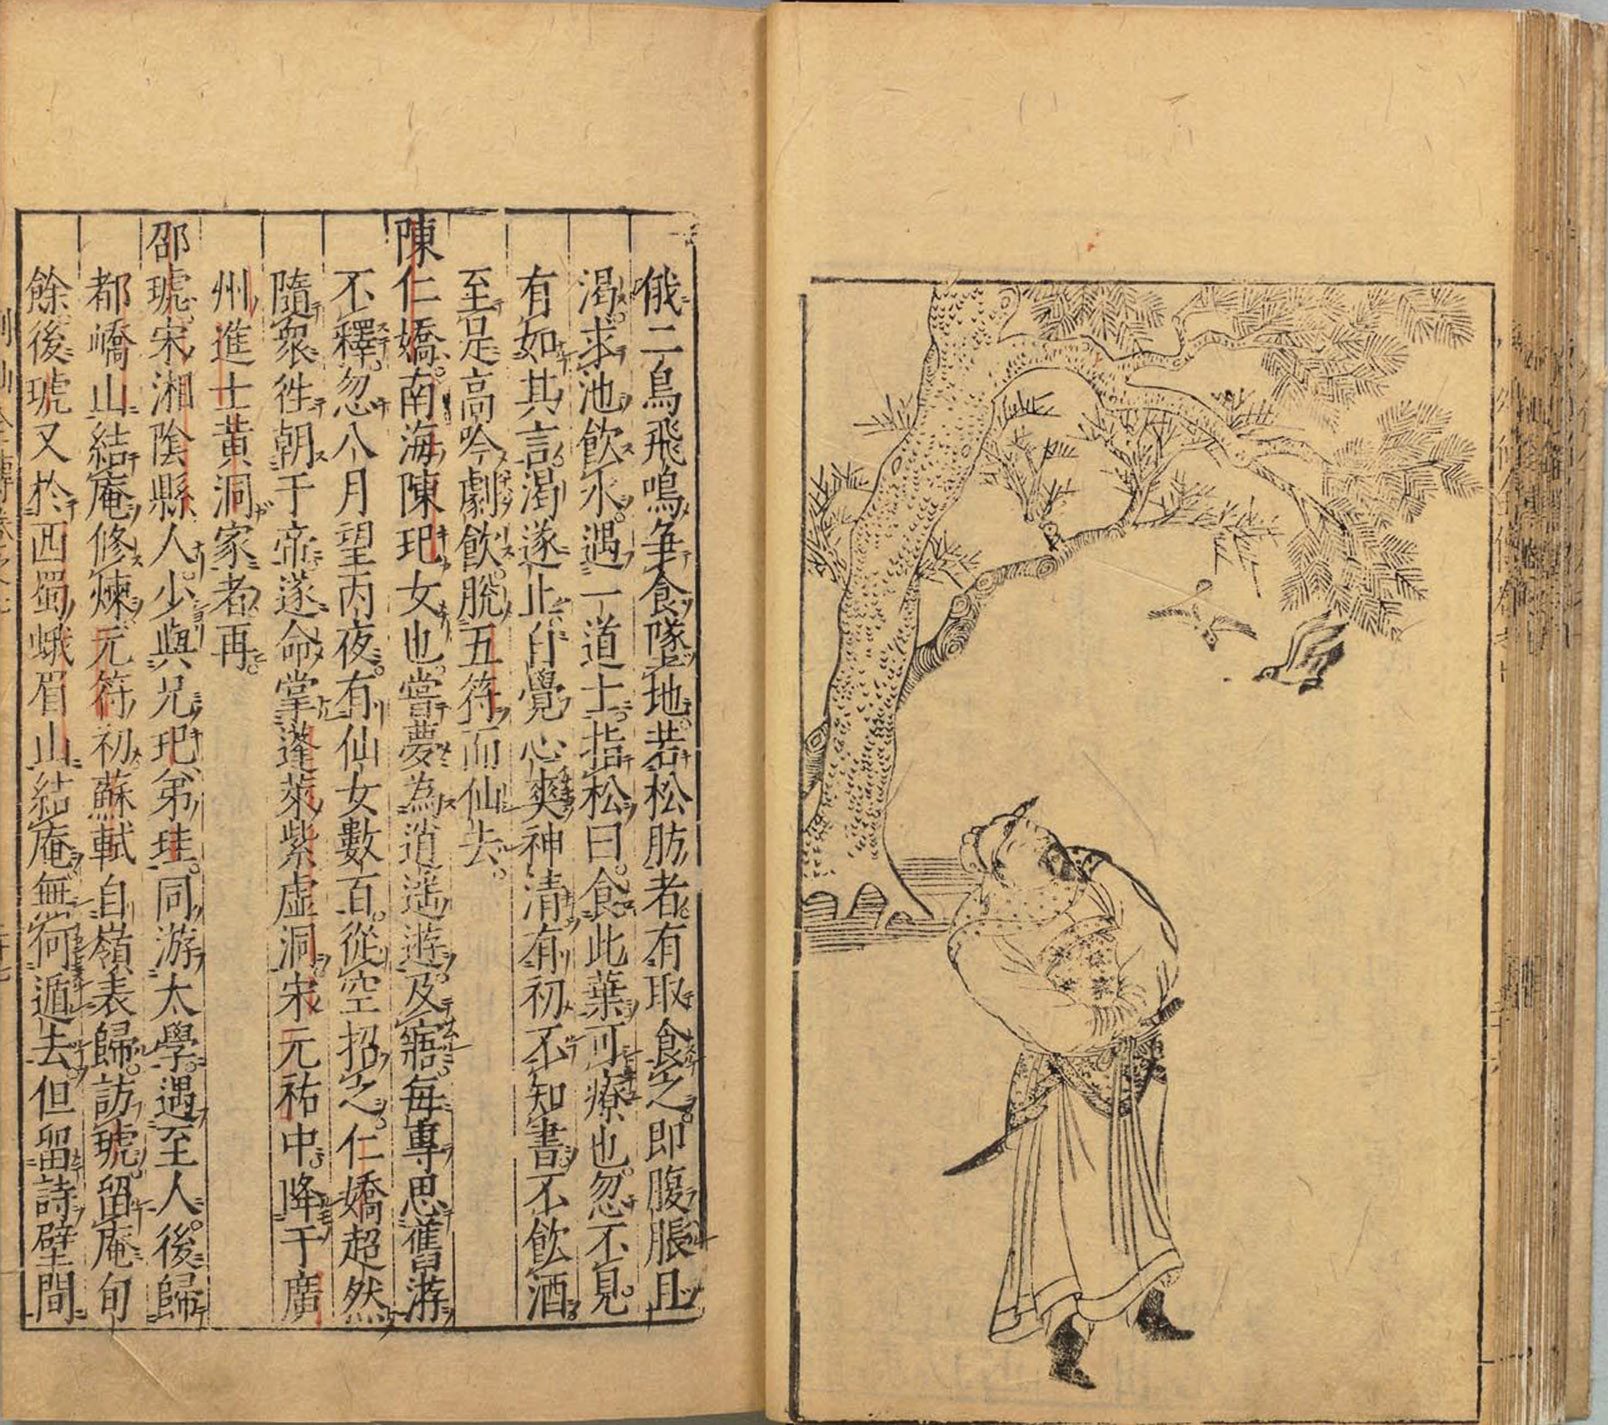 俄二鳥飛鳴爭食墜地若松肪者有取食之即腹脹且
渴求池飲水遇一道士指松曰食此葉可療也忽不見
有如其言渴遂止自覺心爽神清有初不知書不飲酒
至是高吟劇飲脫五符而仙去
陳仁嬌南海陳玘女也嘗夢為逍遙遊及寤每專思舊游
不釋忽八月望丙夜有仙女數百從空招之仁嬌超然
隨衆徃朝于帝遂命掌蓬萊紫虛洞宋元祐中降于廣
州進士黃洞家者再
邵琥宋湘陰縣人少與兄玘弟珪同游太學遇至人後歸
都嶠山結庵修煉元符初蘇軾自嶺表歸訪琥留庵旬
餘後琥又於西蜀峨眉山結庵無何遁去但留詩壁間